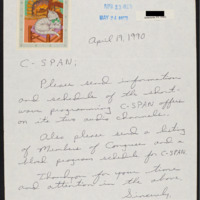 April 19, 1990
C-SPAN,
Please send information
and schedule of the short-
wave programming C-SPAN offers
on its two audio channels.
Also please send a listing
of Members of Congress and a
block program schedule for C-SPAN.
Thank you for your time
and attention in the above.
Sincerely,